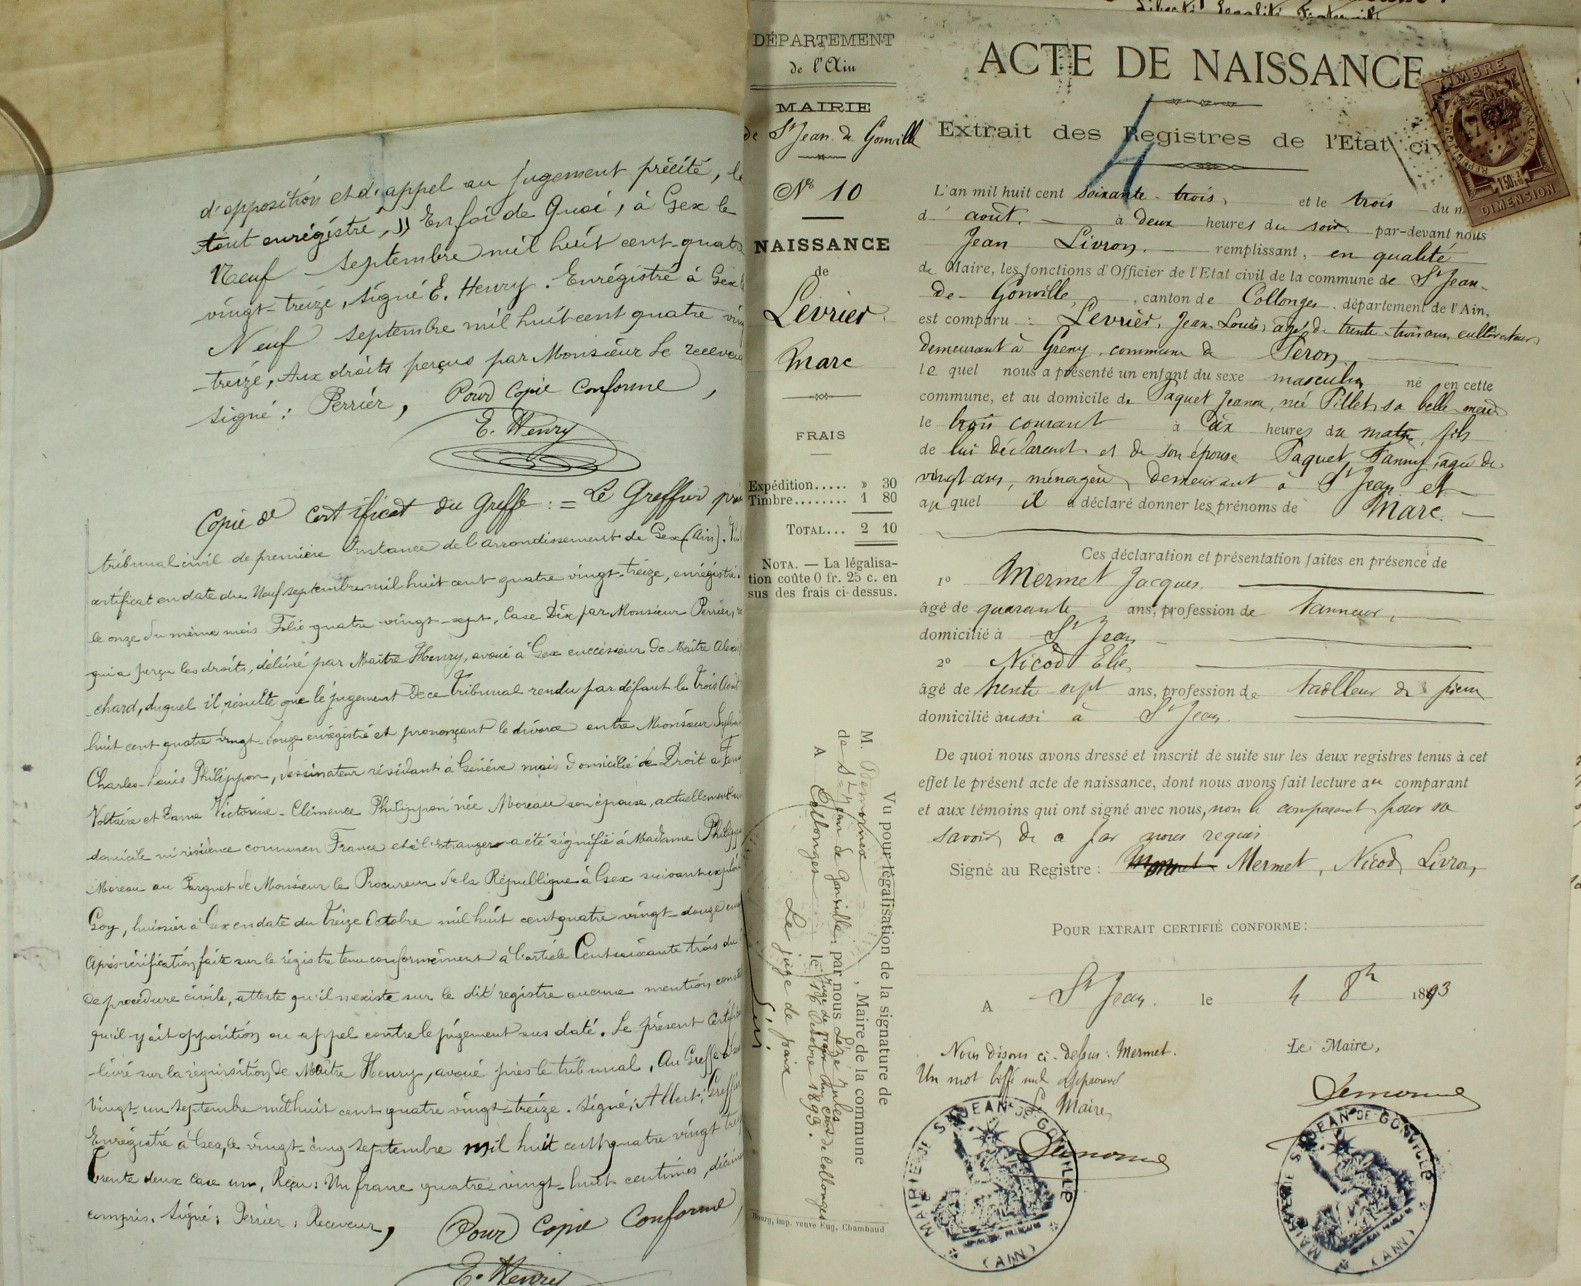 d'opposition et d'appel au jugement précité, le
tout enrégistré, )) En foi de Quoi, à Gex le
Neuf septembre mil huit cent quatre
vingt-treize, signé E. Henry. Enrégistré à Gex
Neuf septembre mil huit cent quatre vingt
-treize, Aux droits perçus par Monsieur Le receveur
signé: Perrier, Pour Copie Conforme,
E. Henry
Copie d certificat du Greffe: = Le Greffier près
tribunal civil de première instance de l'arrondissement de Gex (Ain).
certificat en date du Neuf septembre mil huit cent quatre vingt-treize, enrégistré
le onze du même mois Folio quatre-vingt-sept, Case Dix par Monsieur Perrier,
qui a perçu les droits, délivré par Maître Henry, avoué à Gex successeur de Maître
-chard, duquel il résulte que le jugement De ce Tribunal rendu par défaut le trois Août
huit cent quatre vingt-douze enrégistré et prononçant le divorce entre Monsieur
Charles-Louis Philippon, dessinateur résidant à Genève mais domicilié de Droit à
Voltaire et Dame Victorine-Clémence Philippon née Moreau son épouse, actuellement
domicile ni résidence connus en France et à l'Etranger a été signifié à Madame Philippon
Moreau au Parquet de Monsieur le Procureur de la République à Gex suivant exploit
Goy, huissier à Gex en date du treize Octobre mil huit cent quatre vingt-douze
Après vérification faite sur le régistre tenu conformément à l'article Cent soixante trois du
de procédure civile, atteste qu'il n'existe sur le dit régistre aucune mention
qu'il y ait opposition ou appel contre le jugement sus daté. Le présent
-livré sur la réquisition de Maître Henry, avoué près le tribunal, Au Greffe
vingt-un septembre mil huit cent quatre vingt-treize. Signé: Albert, Greffier
Enrégistré à Gex, le vingt-cinq septembre mil huit cent quatre vingt
trente deux case un, Reçu: Un franc quatre vingt-huit centimes, décimes
compris. Signé: Perrier, Receveur, Pour Copie Conforme,
E. Henry
Liberté Egalité Fraternité
DÉPARTEMENT
de l'Ain
MAIRIE
de St Jean de Gonville
No 10
NAISSANCE
de
Levrier
Marc
FRAIS
Expédition..... » 30
Timbre........ 1 80
TOTAL... 2 10
NOTA. — La légalisa-
tion coûte 0 fr. 25 c. en
sus des frais ci-dessus.
Vu pour légalisation de la signature de
M. , Maire de la commune
de St Jean de Gonville, par nous
juge de paix du canton de Collonges
A Collonges le 14 Octobre 1893.
Le juge de paix
Bourg, imp. veuve Eug. Chambaud
ACTE DE NAISSANCE
4
Extrait des Registres de l'Etat civ
TIMBRE
RÉPUBLIQUE FRANÇAISE
1f50c
DIMENSION
L'an mil huit cent soixante-trois, et le trois du m
d'août, à deux heures du soir par-devant nous
Jean Livron, remplissant, en qualité
de Maire, les fonctions d'Officier de l'Etat civil de la commune de St Jean-
de-Gonville, canton de Collonges, département de l'Ain,
est comparu: Levrier, Jean-Louis, âgé de trente-trois ans, cultivateur,
demeurant à Greny, commune de Péron,
lequel nous a présenté un enfant du sexe masculin né en cette
commune, et au domicile de Paquet Jeanne, née Pillet, sa belle-mère
le trois courant à dix heures du matin, fils
de lui déclarant et de son épouse Paquet Fanny, âgée de
vingt ans, ménagère, demeurant à St Jean et
auquel il a déclaré donner les prénoms de Marc.
Ces déclaration et présentation faites en présence de
1o Mermet Jacques
âgé de quarante ans, profession de tanneur,
domicilié à St Jean
2o Nicod Elie,
âgé de trente sept ans, profession de tailleur de pierre
domicilié aussi à St Jean.
De quoi nous avons dressé et inscrit de suite sur les deux registres tenus à cet
effet le présent acte de naissance, dont nous avons fait lecture au comparant
et aux témoins qui ont signé avec nous, non le comparant pour ne
savoir, de ce par nous requis
Signé au Registre: Mermet, Nicod, Livron,
POUR EXTRAIT CERTIFIÉ CONFORME:
A St Jean. le 4 8bre 1893
Nous disons ci-dessus: Mermet.
Un mot biffé nul approuvé
Le Maire,
Le Maire,
MAIRIE DE ST JEAN DE GONVILLE (AIN)
MAIRIE DE ST JEAN DE GONVILLE (AIN)